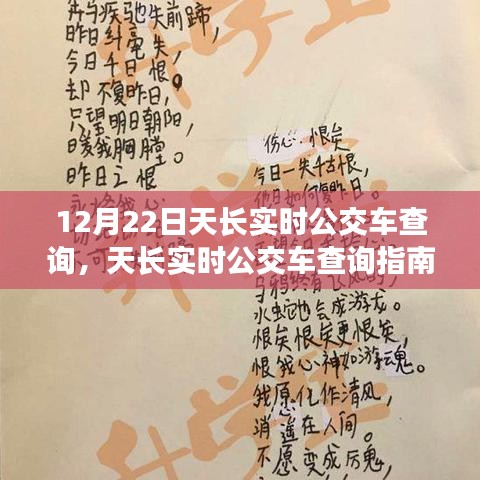 奔马疾驰失前蹄，
昨日纠毫失，
今日千日恨。
却不复昨日，
只望明日朝阳，
暖我胸膛。
昨日之恨
伤心·恨矣
今日一失千古恨，
12月22日天长实时公交车查
询，天长实时公交车查询指南
水蛇也会成游龙。
恨矣恨矣更恨矣，
恨我心神如游魂。
我愿化作清风，
消遥在人间。
不愿变成厉鬼，